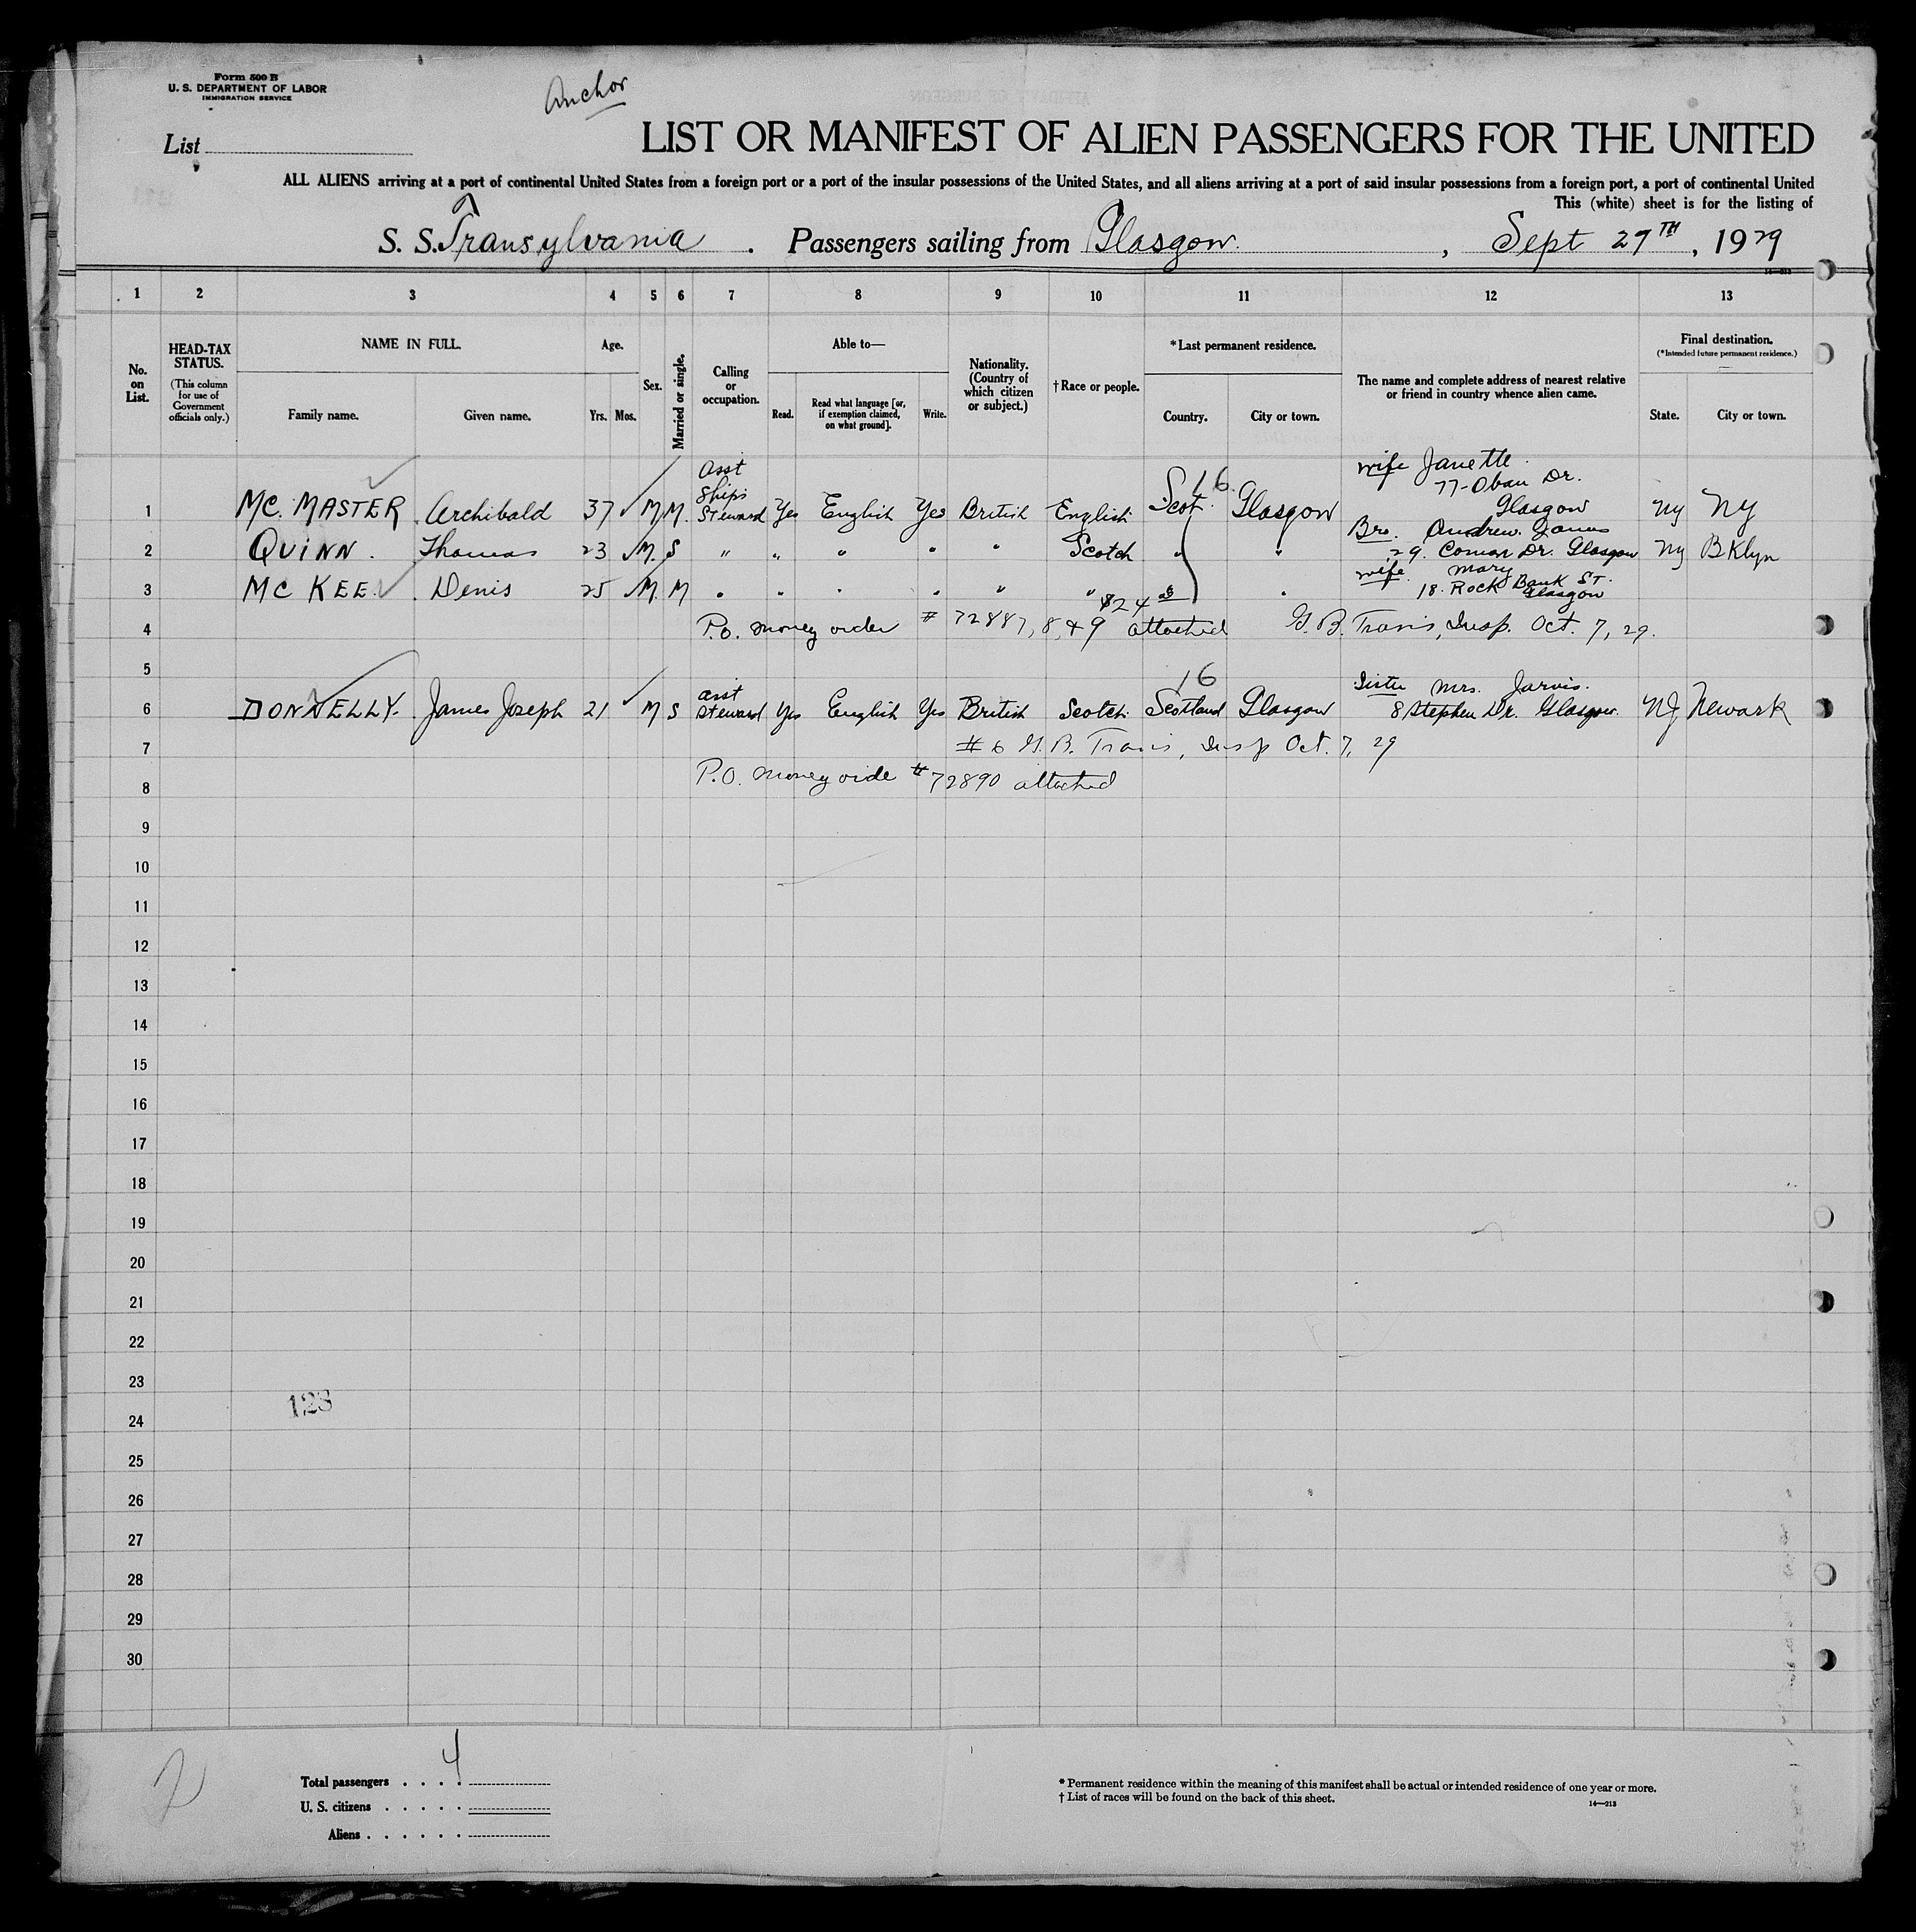 Form 500 B
U. S. DEPARTMENT OF LABOR
IMMIGRATION SERVICE
Anchor
List
LIST OR MANIFEST OF ALIEN PASSENGERS FOR THE UNITED
ALL ALIENS arriving at a port of continental United States from a foreign port or a port of the insular possessions of the United States, and all aliens arriving at a port of said insular possessions from a foreign port, a port of continental United
This (white) sheet is for the listing of
S. S. Transylvania . Passengers sailing from Glasgow , Sept 27TH , 1929
14—213
1 2 3 4 5 6 7 8 9 10 11 12 13
No. on List.
HEAD-TAX STATUS.
(This column for use of Government officials only.)
NAME IN FULL.
Family name. Given name.
Age.
Yrs. Mos.
Sex.
Married or single.
Calling or occupation.
Able to—
Read. Read what language [or, if exemption claimed, on what ground]. Write.
Nationality. (Country of which citizen or subject.)
† Race or people.
* Last permanent residence.
Country. City or town.
The name and complete address of nearest relative or friend in country whence alien came.
Final destination.
(*Intended future permanent residence.)
State. City or town.
16
1 MC. MASTER Archibald 37 M M. Asst Ships Steward Yes English Yes British English Scot. Glasgow wife Janette 77-Oban Dr. Glasgow NY NY
2 QUINN. Thomas 23 M. S " " " " " Scotch " " Bro. Andrew James 29. Comar Dr. Glasgow NY BKlyn
3 MC KEE. Denis 25 M. M " " " " " " " wife. Mary 18. Rock Bank ST. Glasgow
$24
4 P.O. money order # 72887, 8, & 9 attached G. B. Travis, Insp. Oct. 7, 29.
5
16
6 DONNELLY. James Joseph 21 M S asst Steward Yes English Yes British Scotch. Scotland Glasgow Sister Mrs. Jarvis. 8 Stephen Dr. Glasgow. NJ Newark
7 # 6 G. B. Travis, Insp Oct. 7, 29
8 P.O. money orde # 72890 attached
9
10
11
12
13
14
15
16
17
18
19
20
21
22
23
123
24
25
26
27
28
29
30
2
Total passengers . . . . 4
U. S. citizens . . . . .
Aliens . . . . . .
* Permanent residence within the meaning of this manifest shall be actual or intended residence of one year or more.
† List of races will be found on the back of this sheet.
14—213